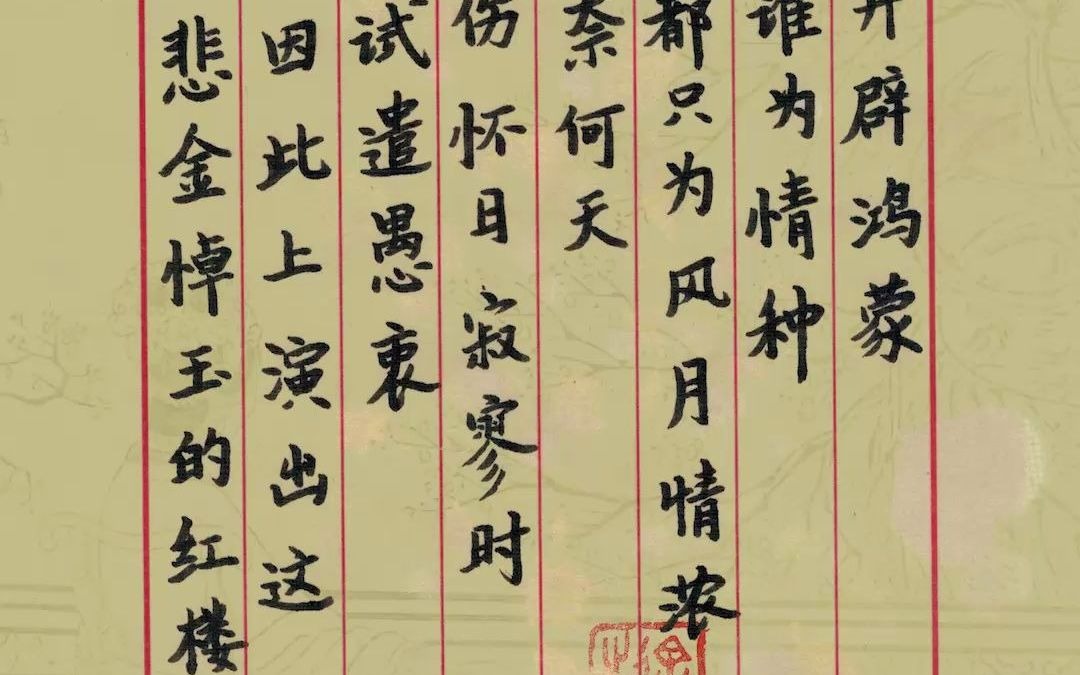 开辟鸿蒙
谁为情种
都只为风月情浓
奈何天
伤怀日寂寥时
试遣愚衷
因此上演出这
悲金悼玉的红楼